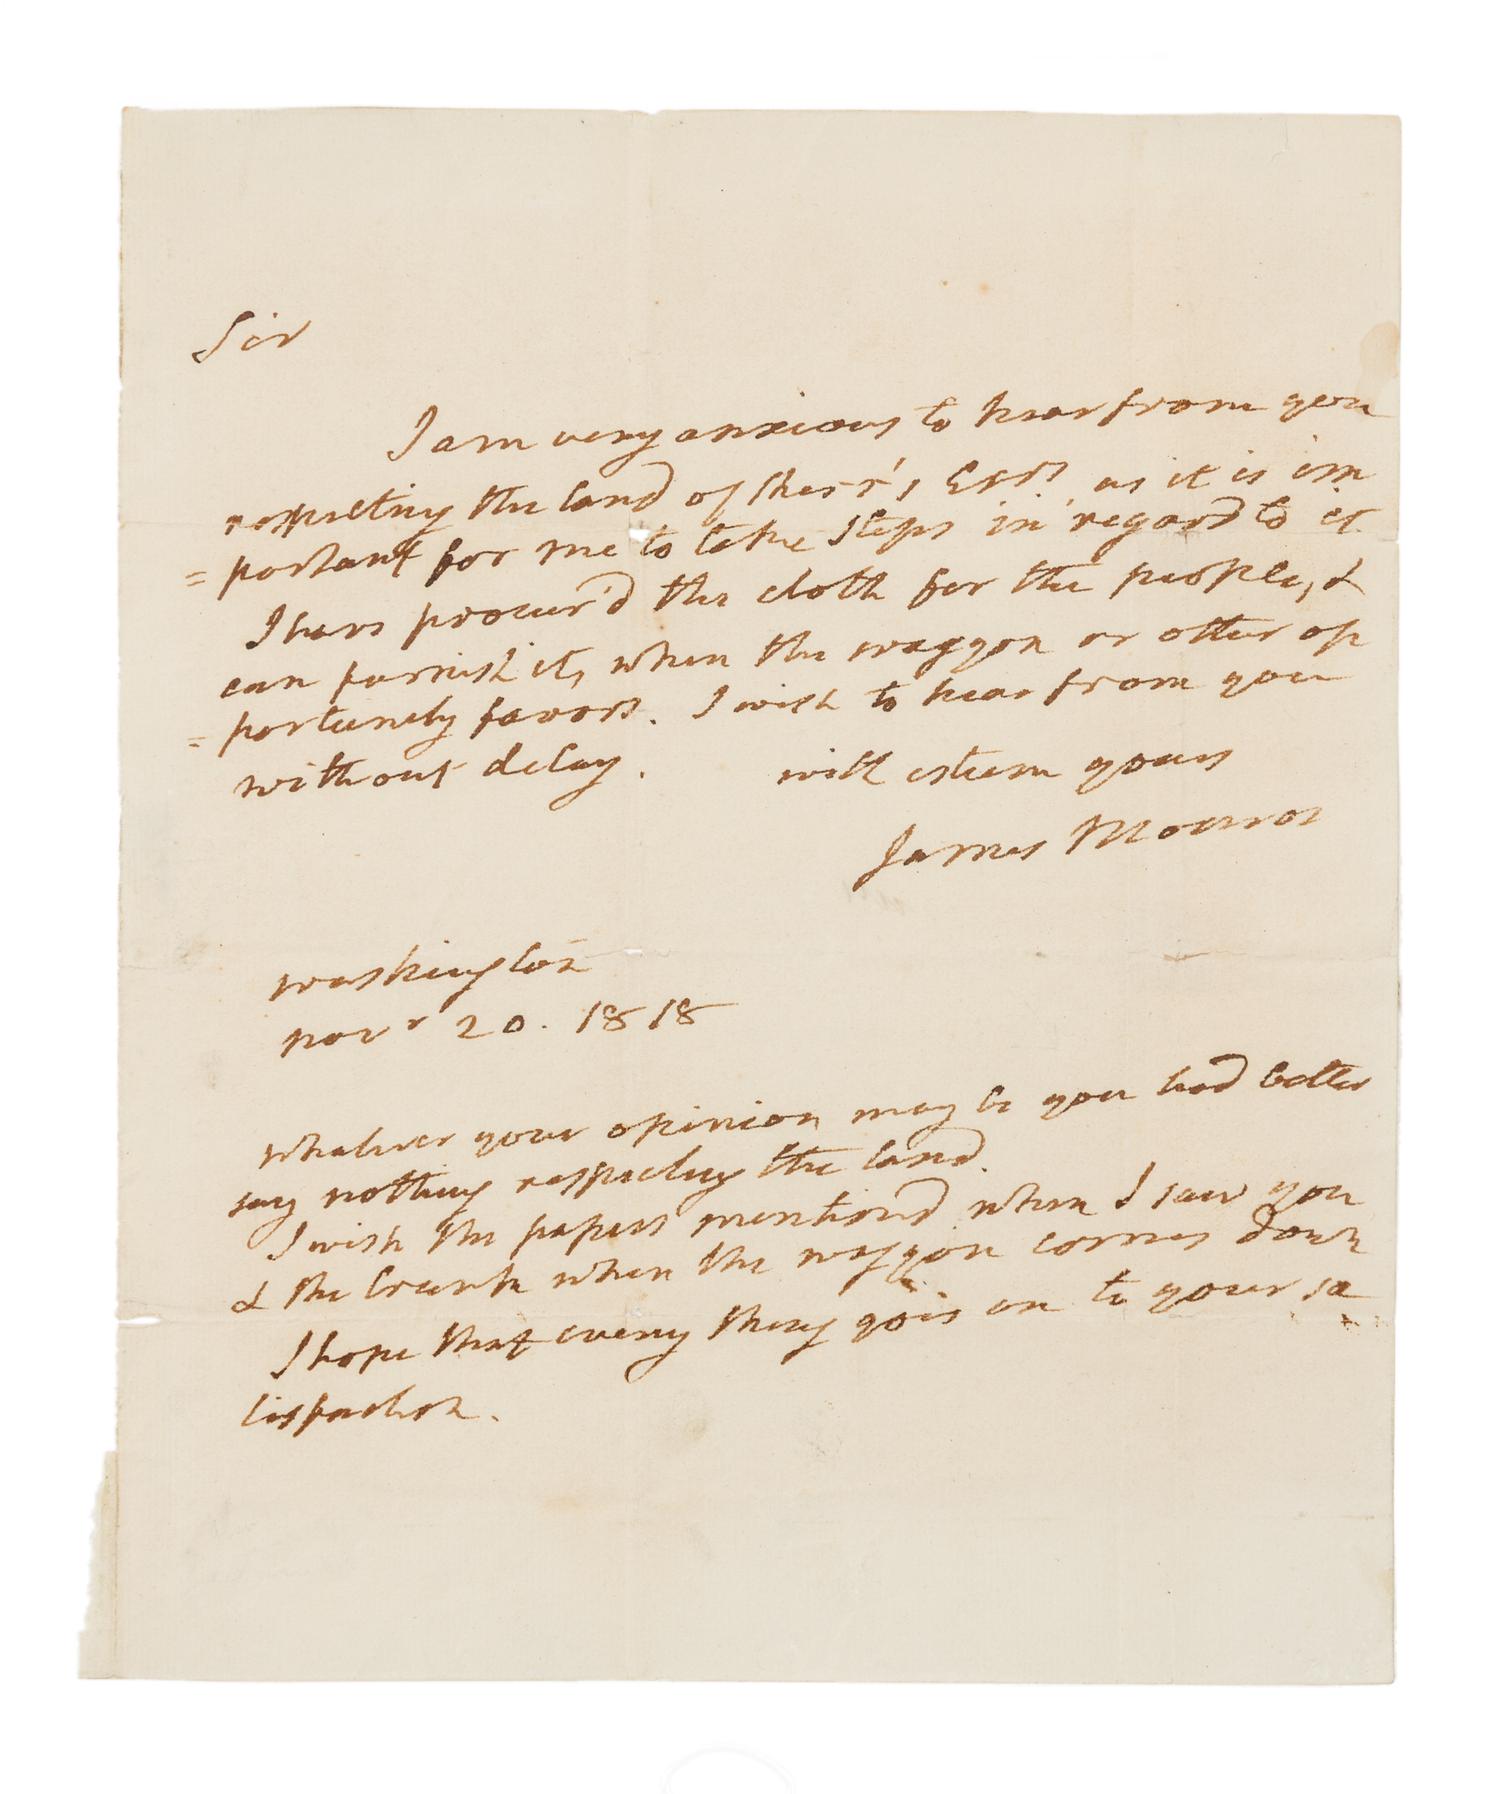 Sir
I am very anxious to hear from you
respecting the land of as it is im
= portant for me to take steps in regard to it.
I have procur'd the cloth for the people, &
can furnish it, when the waggon or other op
= portunity favors. I wish to hear from you
without delay. with esteem yours
James Monroe
Washington
Novr 20. 1818
Whatever your opinion may be you had better
say nothing respecting the land.
I wish the papers mention'd when I saw you
& the trunk when the waggon comes down
I hope that every thing goes on to your sa
tisfaction.